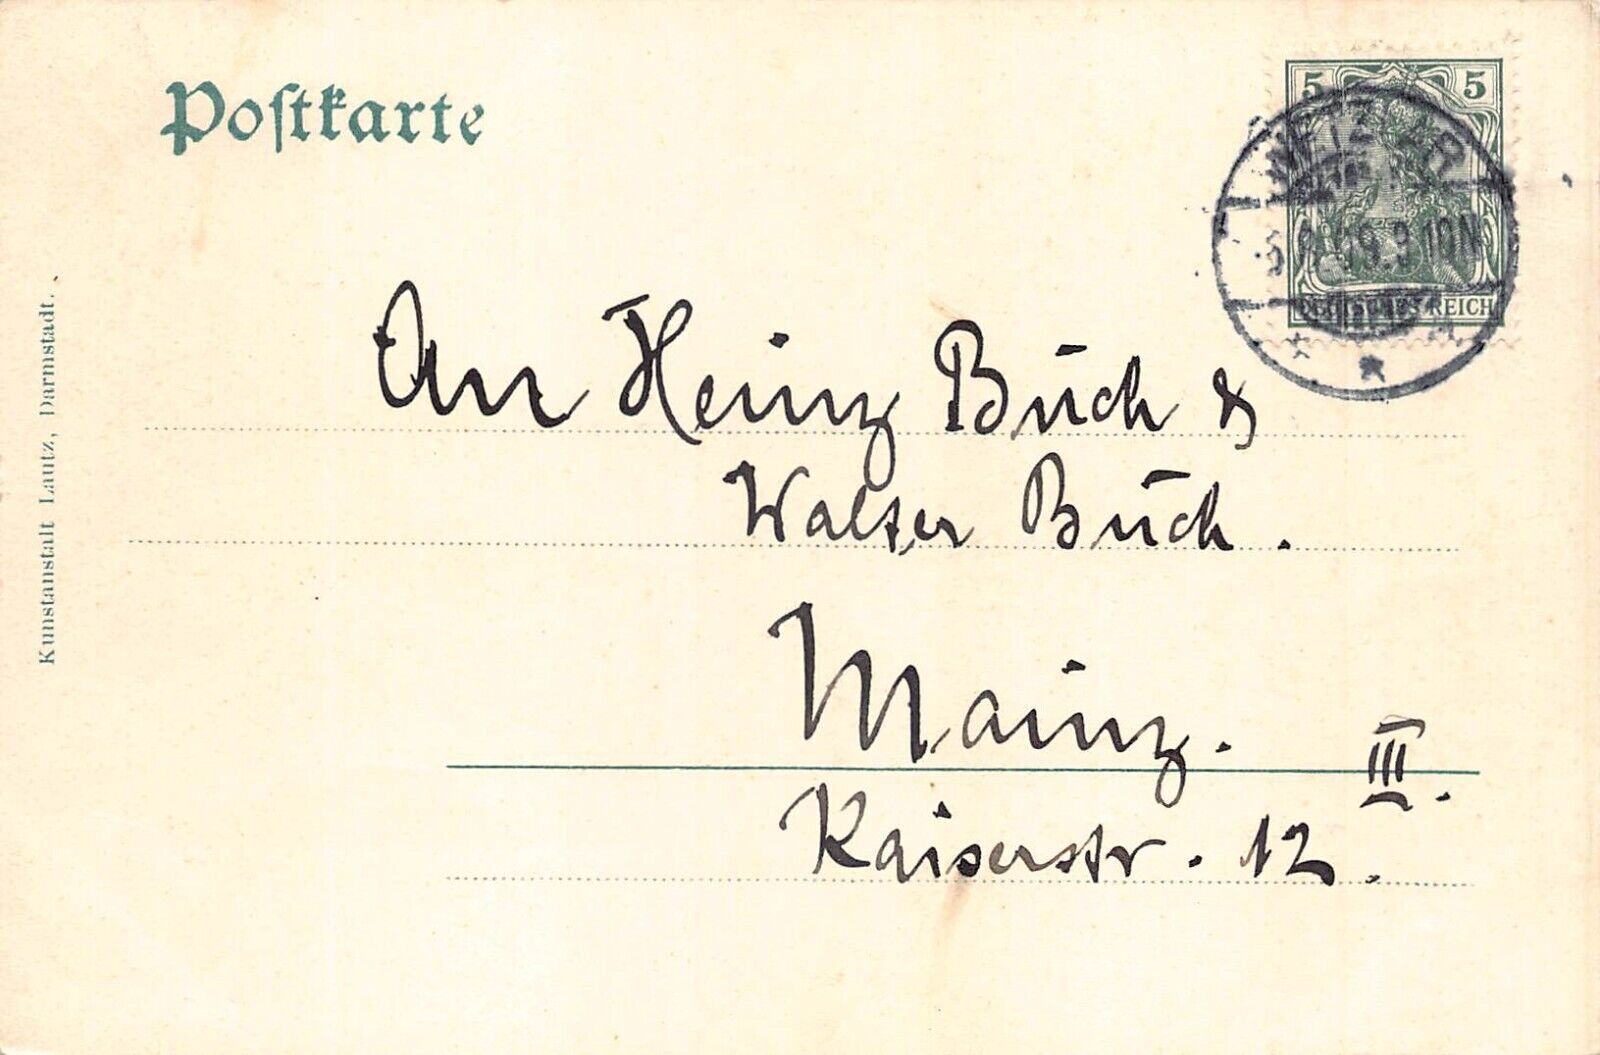 Postkarte
5 5
WETZLAR
9-10N
DEUTSCHES REICH
An Heinz Buch &
Walter Buch.
Mainz.
III.
Kaiserstr. 12.
Kunstanstalt Lautz, Darmstadt.